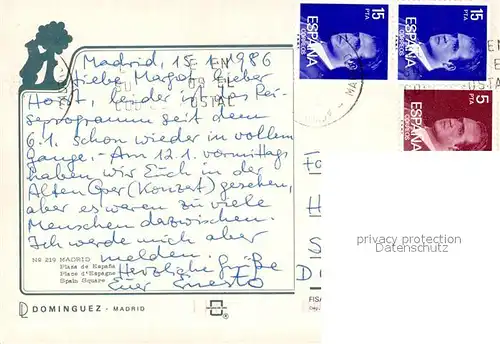 Madrid, 15.1.1986
Liebe Margot, lieber
Horst, leider ist das Rei-
seprogramm seit dem
6.1. schon wieder in vollem
Gange. - Am 12.1. vormittags
haben wir Euch in der
Alten Oper (Konzert) gesehen,
aber es waren zu viele
Menschen dazwischen.
Ich werde mich aber
melden.
Herzliche Grüße
Euer Ernesto
Nº 219 MADRID
Plaza de España
Place d'Espagne
Spain Square
DOMINGUEZ - MADRID
15
PTA
ESPAÑA
CORREOS
15
PTA
ESPAÑA
CORREOS
5
PTA
ESPAÑA
CORREOS
privacy protection
Datenschutz
FISA